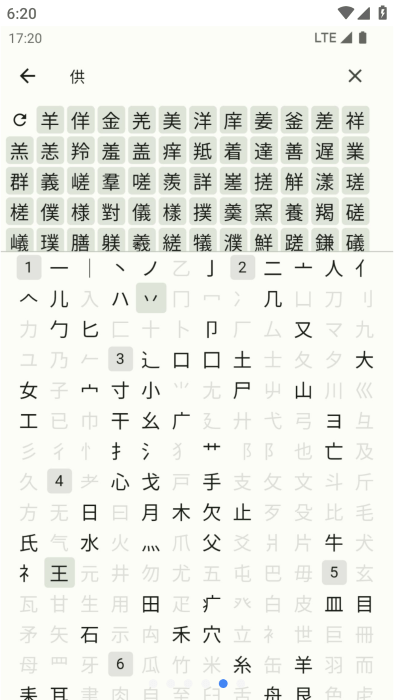 6:20
17:20 LTE
供
羊 佯 金 羌 美 洋 庠 姜 釜 差 祥
羔 恙 羚 羞 盖 痒 羝 着 達 善 遅 業
群 義 嵯 羣 嗟 羨 詳 嵳 搓 觧 漾 瑳
槎 僕 様 對 儀 樣 撲 羹 窯 養 羯 磋
嶬 璞 膳 躾 羲 縒 犠 濮 鮮 蹉 鎌 礒
1 一 丨 丶 ノ 乙 亅 2 二 亠 人 亻
𠆢 儿 入 ハ 丷 冂 冖 冫 几 凵 刀 刂
力 勹 匕 匚 十 卜 卩 厂 厶 又 マ 九
ユ 乃 𠂉 3 辶 口 囗 土 士 夂 夕 大
女 子 宀 寸 小 ⺌ 尢 尸 屮 山 川 巛
工 已 巾 干 幺 广 廴 廾 弋 弓 ヨ 彑
彡 彳 忄 扌 氵 犭 艹 阝 阝 也 亡 及
久 4 耂 心 戈 戸 手 支 攵 文 斗 斤
方 无 日 曰 月 木 欠 止 歹 殳 比 毛
氏 气 水 火 灬 爪 父 爻 爿 片 牛 犬
礻 王 元 井 勿 尤 五 屯 巴 毋 5 玄
瓦 甘 生 用 田 疋 疒 癶 白 皮 皿 目
矛 矢 石 示 禸 禾 穴 立 衤 世 巨 冊
母 罒 牙 6 瓜 竹 米 糸 缶 羊 羽 而
耒 耳 聿 肉 自 至 臼 舌 舟 艮 色 虍